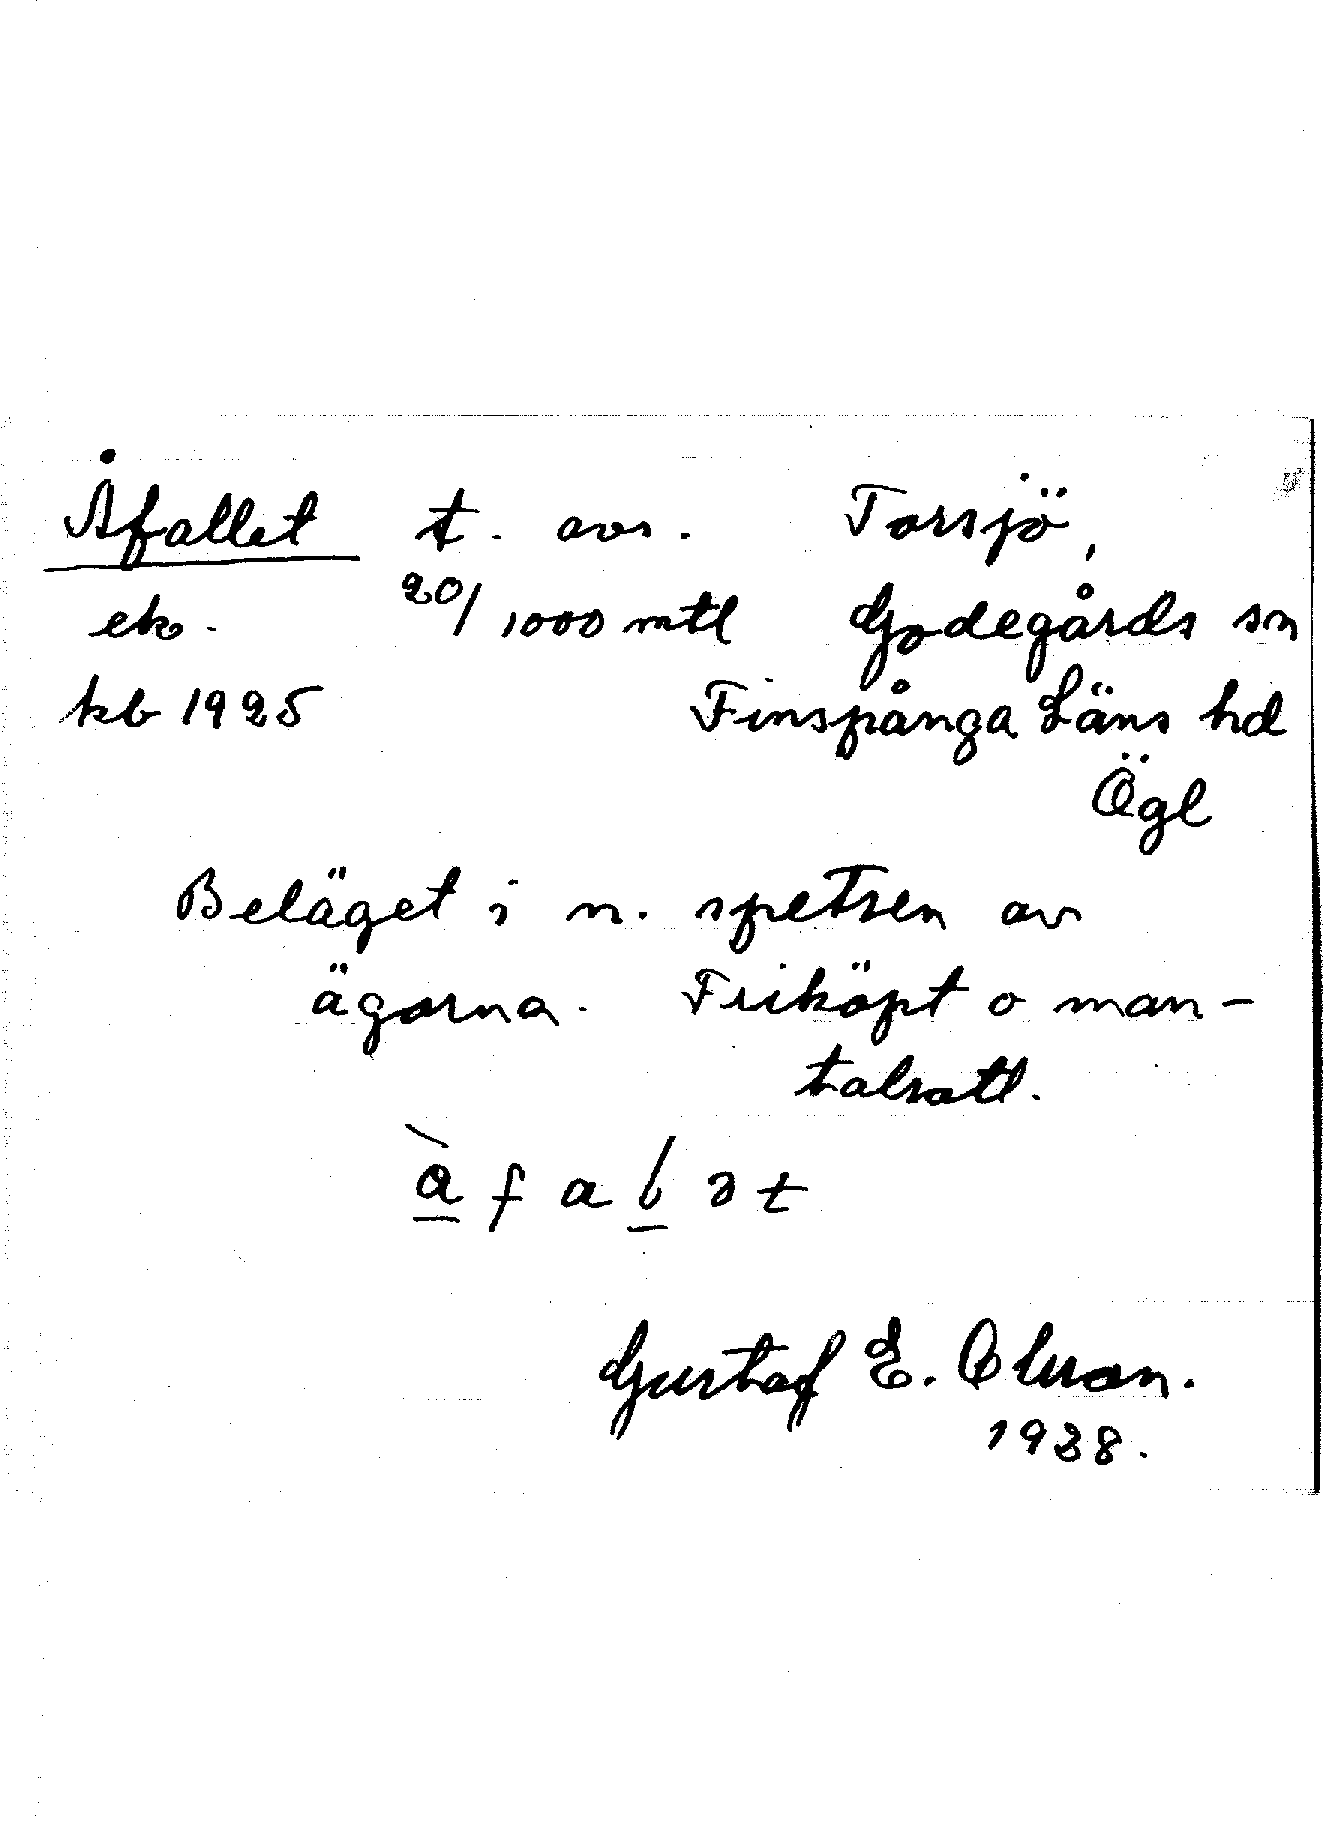 Åfallet t. avs. Torsjö,
ek. 20/1000 mtl Godegårds sn
kb 1925 Finspånga Läns hd
Ögl
Beläget i n. spetsen av
ägorna. Friköpt o man-
talsatt.
å̀ f a l ə t
Gustaf E. Olsson.
1938.